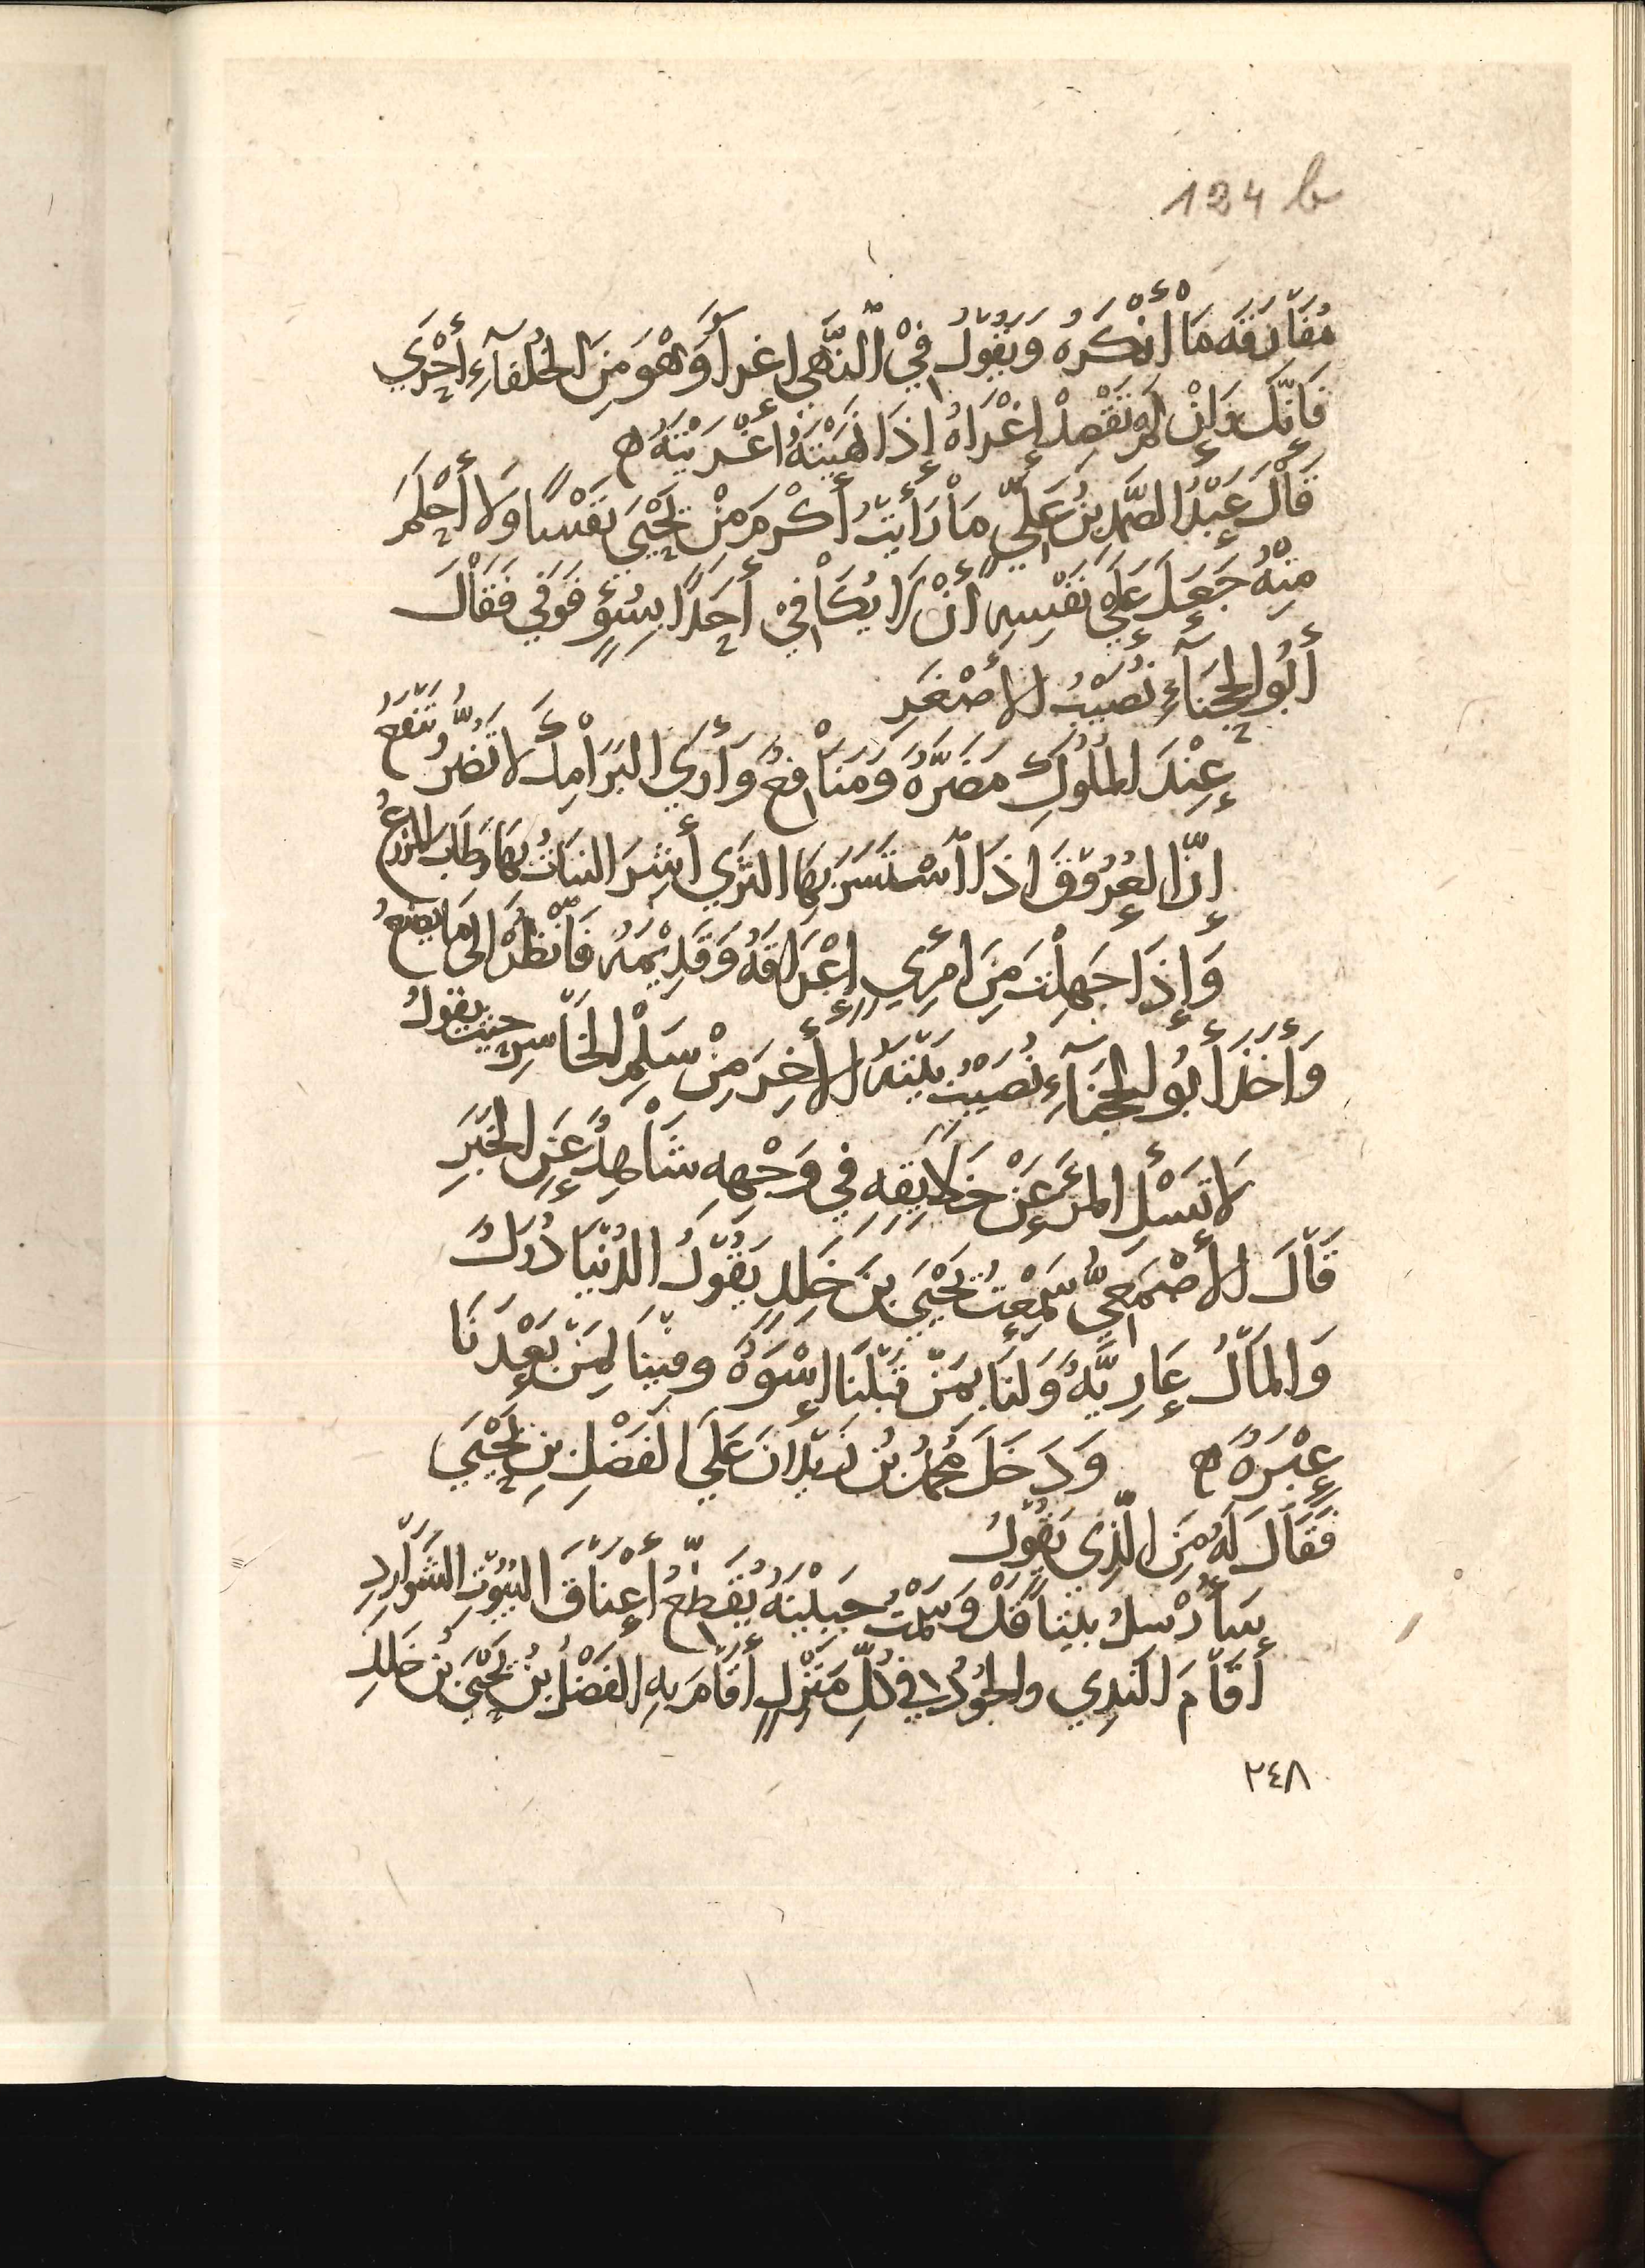 124 b
مُقَارَفَه مَا أَنْكَرَهُ وَيَقُولُ فِيْ النَّهْيِ اغراً وَهْوَ مِنَ الخُلَفَآءِ أَحْرَي
فَإِنَّكَ وَإِنْ لَمْ تَقْصِدْ إِغْرَاهُ إِذَا نَهَيْتَهُ أَغْرَيْتَهُ ه
قَالَ عَبْدُ الصَّمَدِ بنُ عَلِيٍّ مَا رَأَيتُ أَكْرَمَ مِنْ يَحْيَي نَفْسًا وَلَا أَحْلَمَ
مِنْهُ جَعَلَ عَلَي نَفْسِهِ أَنْ لَا يُكَافِيْ أَحَدًا بِسُوْءٍ فَوَفي فَقَالَ
أَبُو الحَجْنَآءِ نُصَيْبُ الأَصْغَر
عِنْدَ المُلُوكِ مَضَرَّةٌ وَمَنَافِعُ وَأَرَي البَرَامِكَ لَا تَضُرُّ تَنْفَعُ
إِنَّ العُرُوْقَ اذَا اسْتَسَرَّ بِهَا الثَّرَي أَشِرَ النَبَاتُ بِهَا وَطَابَ المَزْرَعُ
وَإِذَا جَهِلْتَ مِنَ امرِيٍ إِعْرَاقَهُ وَقَدِيْمَهُ فَانْظُرْ الَى مَا يَصْنَعُ
وَأَخَذَ أَبُو الحَجْنَآءِ نُصَيْبُ بَيْتَهُ الأَخِرَ مِنْ سَلْمِ الخَاسِرِ حيث يقولُ
لَا تَسْأَلِ المَرْءَ عَنْ خَلَايِقِهِ فِي وَجْهِهِ شَاهِدٌ عَنِ الخَبَرِ
قَالَ الأَصْمَعِيُّ سَمِعْتُ يَحْيَيَ بنَ خَلِدِ يَقُوْلُ الدُنْيَا دُوَلٌ
وَالمَالُ عَارِيَّةٌ وَلَنَا بِمَنْ قَبْلَنَا إِسْوَةٌ وَفِيْنَا لِمَنْ بَعْدَنَا
عِبْرَةٌ ه وَدَخَلَ مُحَمَّدُ بْنُ زَيْدَانَ عَلَي الفَضْلِ بنِ يَحْيَي
فَقَالَ لَهُ مَنِ الَّذِي يَقُوْلُ
سَأُرْسِلُ بَيْتاً قَدْ وَسَمْتُ جَبِيْنَهُ يُقَطِّعُ أَعْنَاقَ البُيُوْتِ الشَوَارِدِ
أَقَامَ النَدِي والجُوْدُ فِي كُلِّ مَنْزِلٍ أَقَامَ بِهِ الفَضْلُ بنُ يَحْيَيَ بن خَلِدِ
٢٤٨